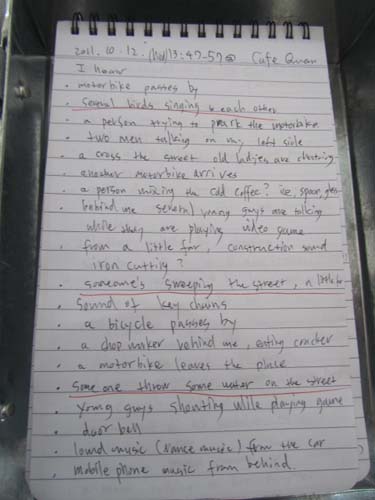 2011. 10. 12. 13:47-57 Cafe Quan
I hear
· motorbike passes by
· several birds singing to each other
· a person trying to park the motorbike
· two men talking on my left side
· a cross the street old ladies are chatting
· another motorbike arrives
· a person mixing the cold coffee? ice, spoon, glass
· behind me several young guys are talking
while they are playing video game
· from a little far, construction sound
iron cutting?
· someone's sweeping the street, a little far
· sound of key chains
· a bicycle passes by
· a behind me, eating cracker
· a motorbike leaves the place
· Some one throw some water on the street
· young guys shouting while playing game
· door bell
· lound music (rance music) from the car
· mobile phone music from behind.